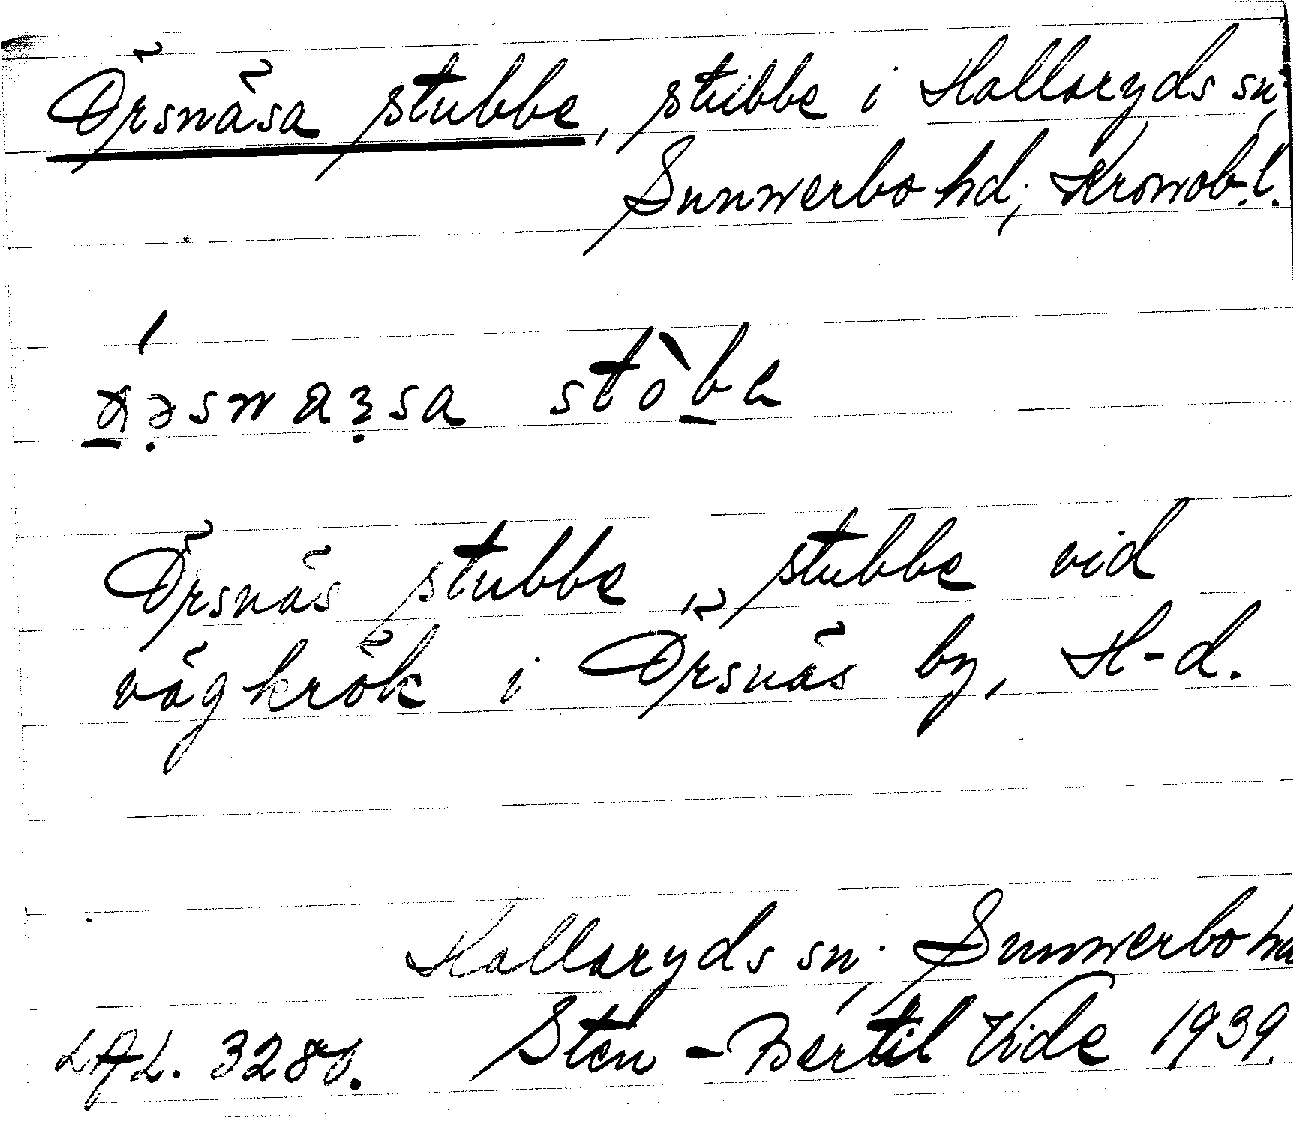 Örsnäsa stubbe, stubbe i Hallaryds sn,
Sunnerbo hd, Kronob. l.
Örsnäs stubbe, stubbe vid
vägkrök i Örsnäs by, H-d.
Hallaryds sn, Sunnerbo hd
LAL. 3280. Sten-Bertil Vide 1939.